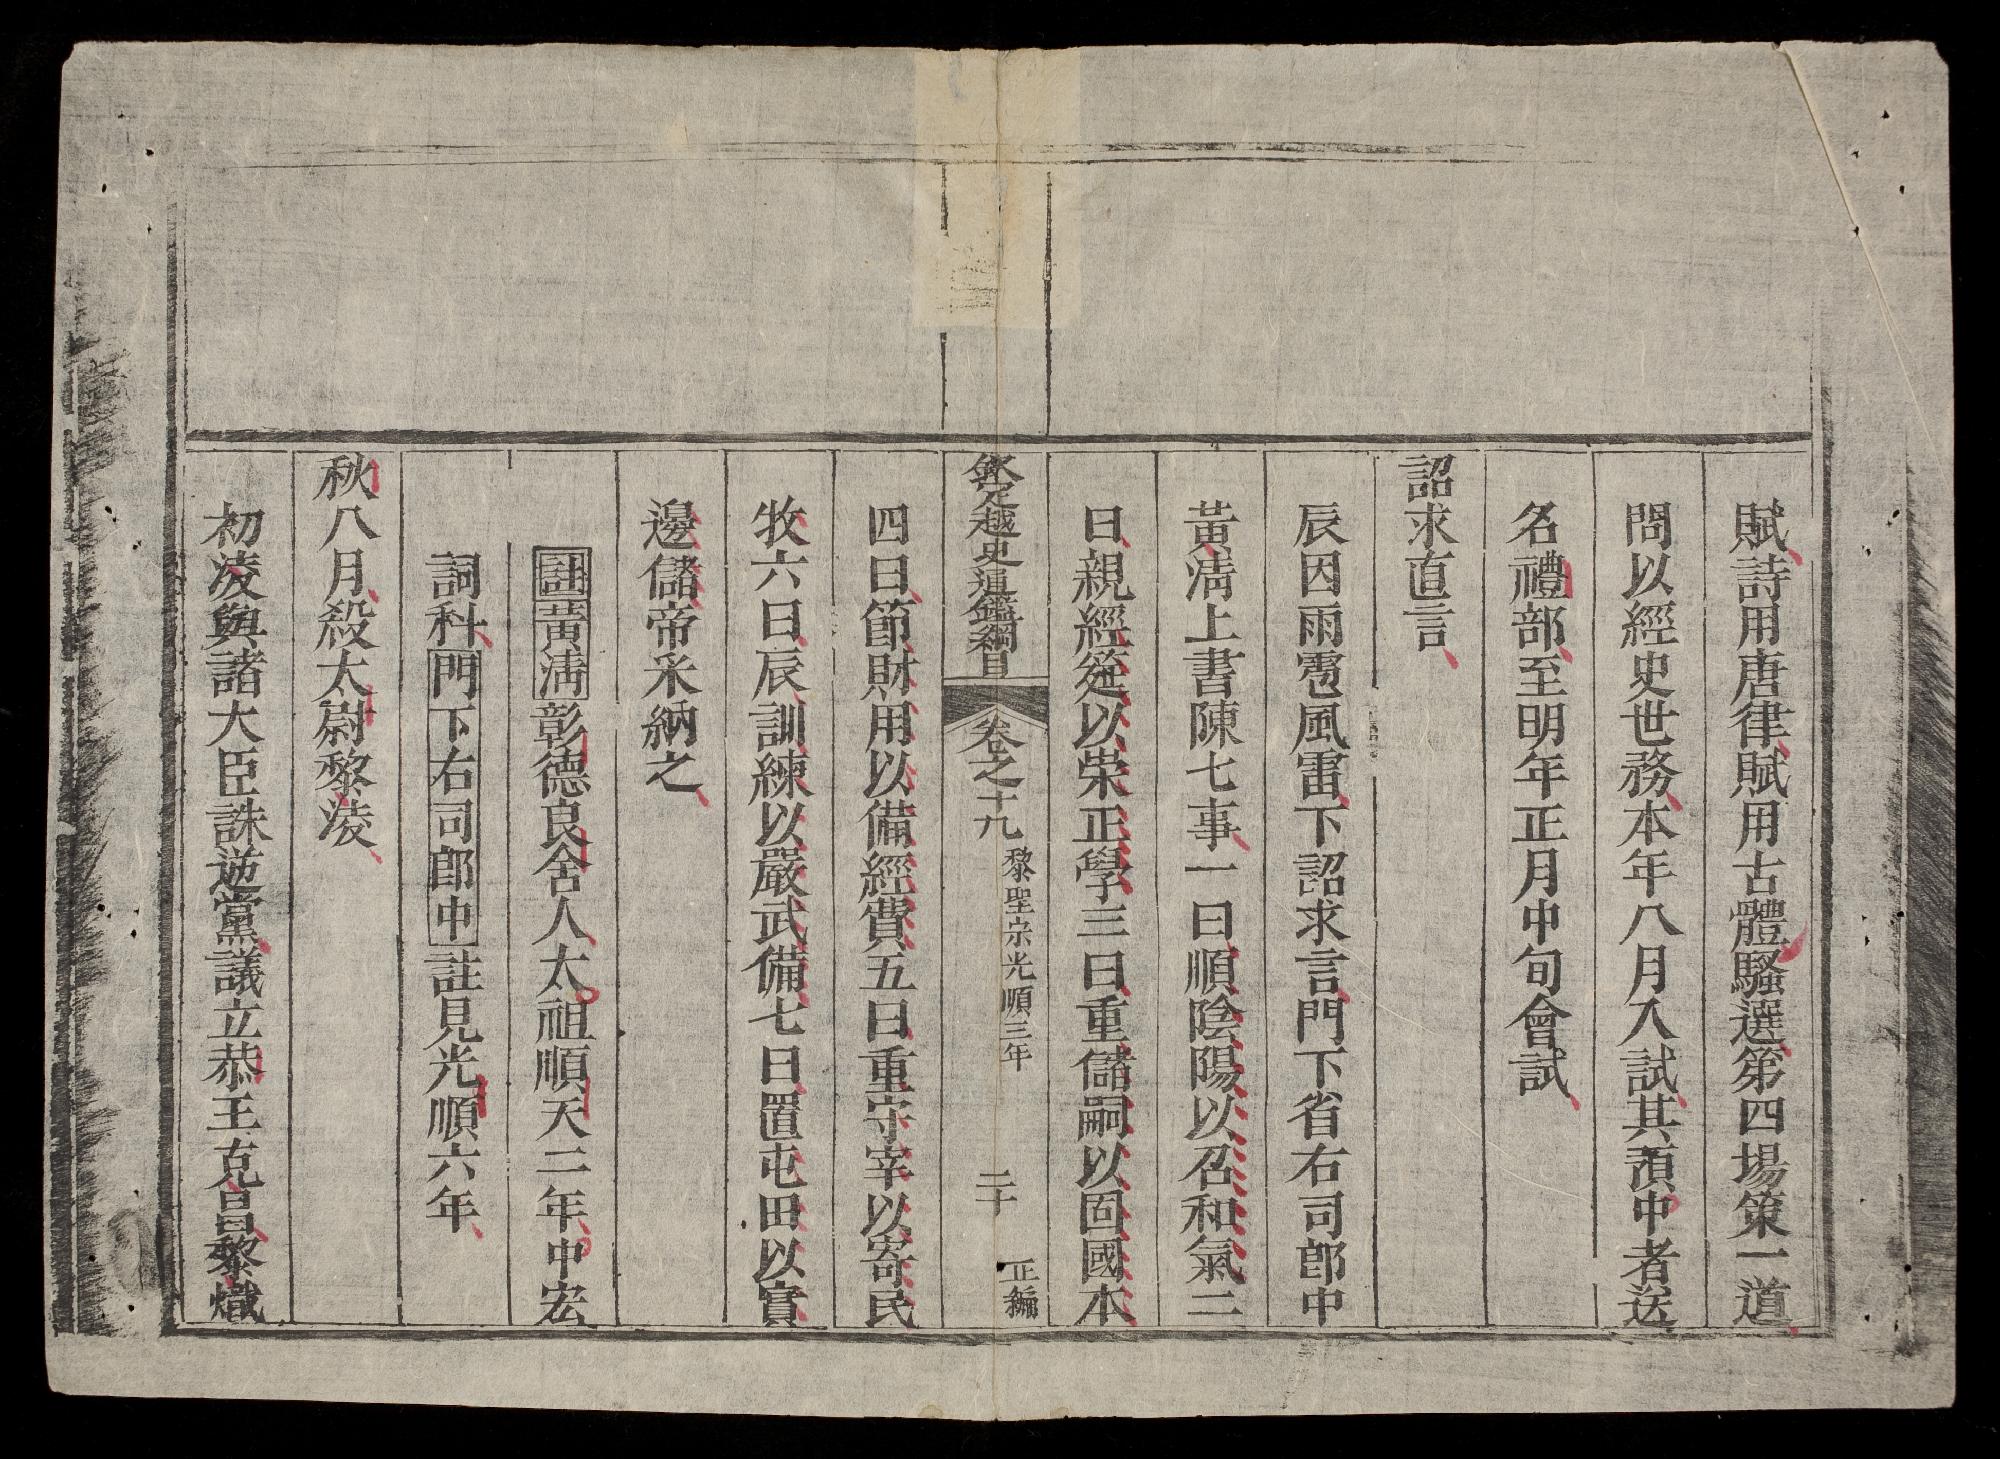 賦詩用唐律賦用古體騷選第四場策一道
問以經史世務本年八月入試其預中者送
名禮部至明年正月中旬會試
詔求直言
辰因雨雹風雷下詔求言門下省右司郎中
黃清上書陳七事一曰順陰陽以召和氣二
曰親經筵以崇正學三曰重儲嗣以固國本
欽定越史通鑑綱目
卷之十九
黎聖宗光順三年
二十
正編
四曰節財用以備經費五曰重守宰以寄民
牧六曰辰訓練以嚴武備七曰置屯田以實
邊儲帝采納之
註黃清彰德良舍人太祖順天二年中宏
詞科門下右司郎中註見光順六年
秋八月殺太尉黎淩
初淩與諸大臣誅逆黨議立恭王克昌黎熾